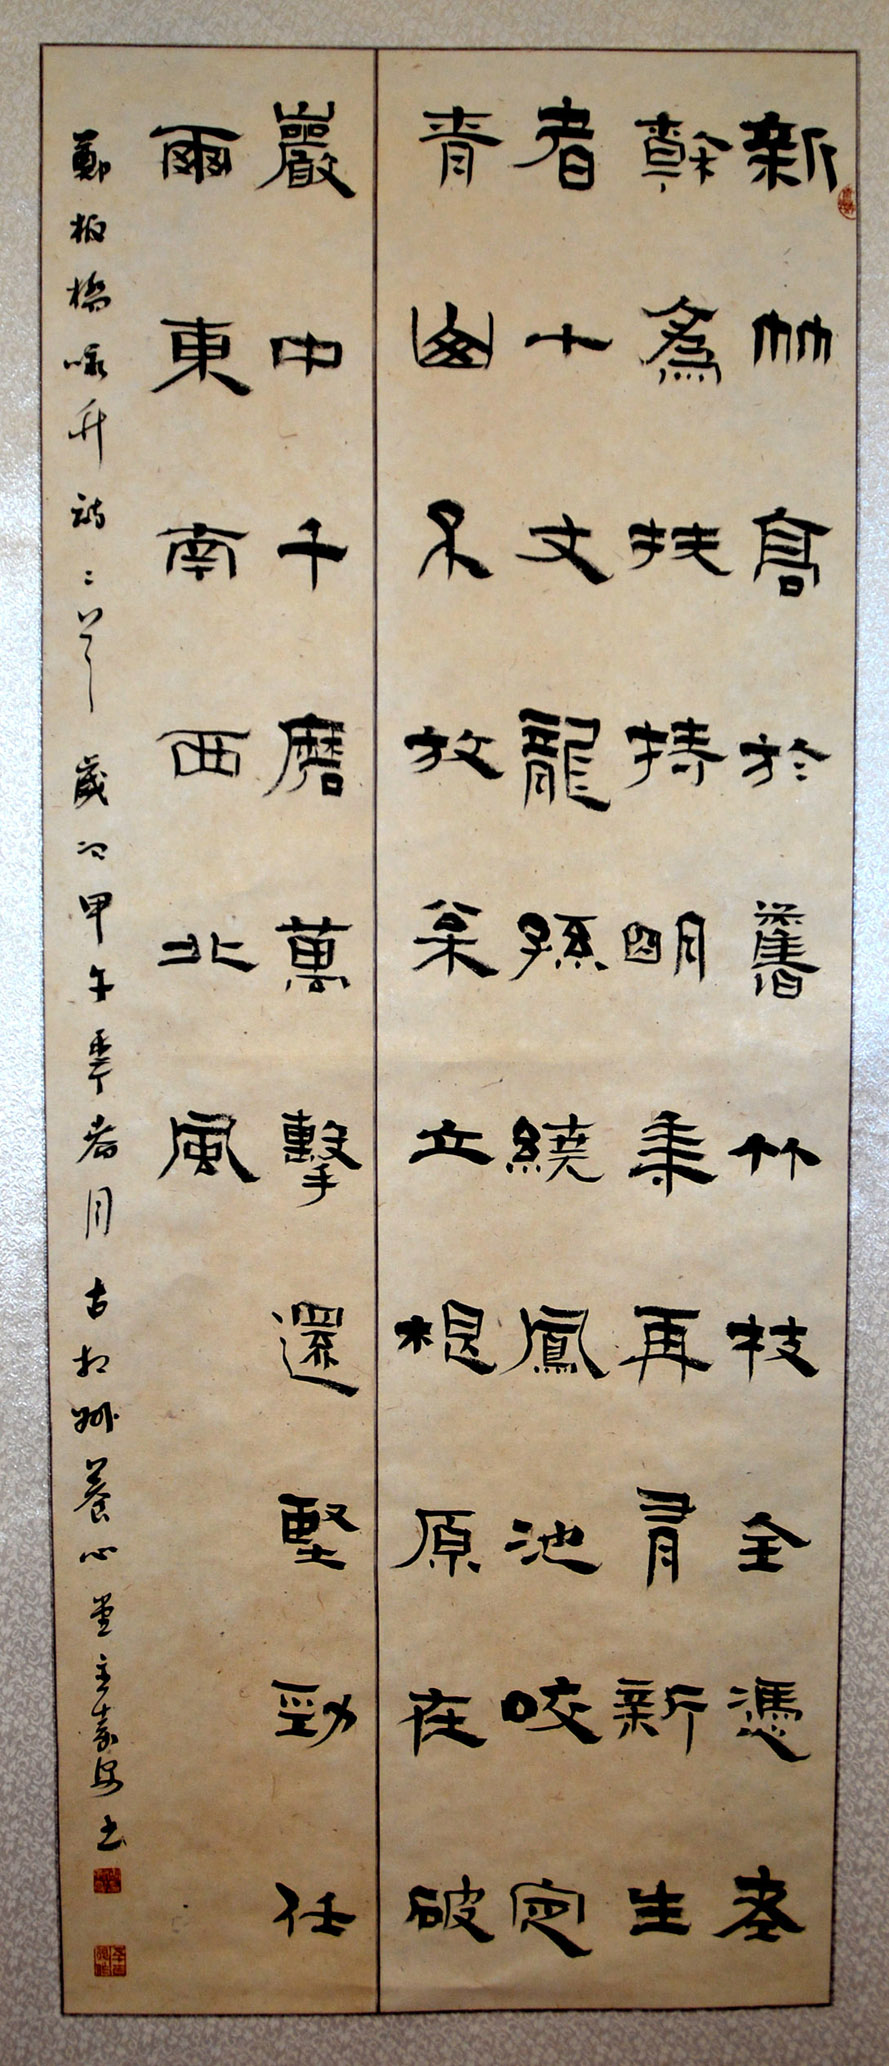 新竹高於舊竹枝全憑老
幹爲扶持明年再有新生
者十丈龍孫繞鳳池咬定
青山不放枀立根原在破
巖中千磨萬擊還堅勁任
爾東南西北風
鄭板橋咏竹詩二首 歲次甲午季春月 古相州養心堂主書